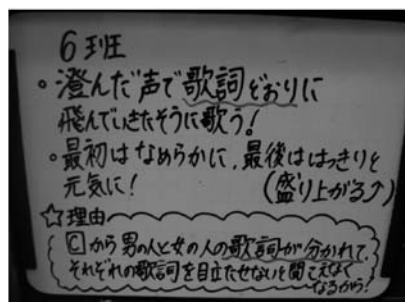 6班
・澄んだ声で歌詞どおりに
飛んでいきたそうに歌う!
・最初はなめらかに、最後ははっきりと
元気に! (盛り上がる⤴)
☆理由
Cから男の人と女の人の歌詞が分かれて、
それぞれの歌詞を目立たせないと聞こえなく
なるから!